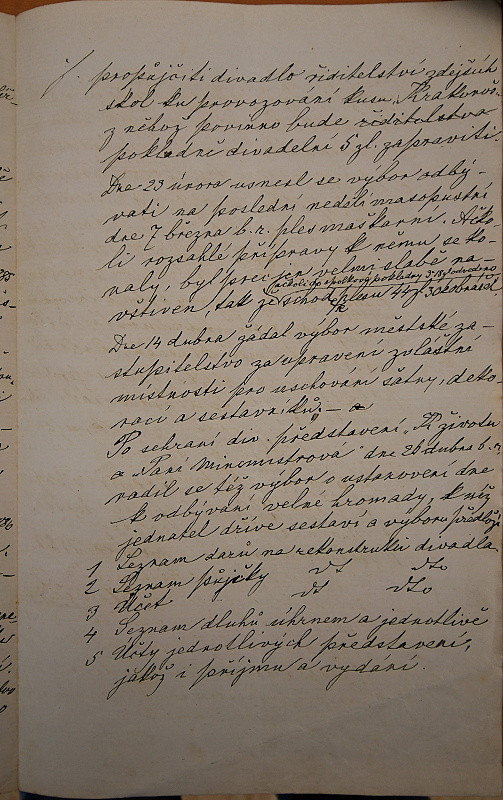 propůjčiti divadlo řiditelství zdejších
škol ku provozování kusu „Krakonoš“
z něhož povinno bude řiditelstvo
pokladně divadelní 5 zl. zapraviti.
Dne 23 února usnesl se výbor odbý-
vati na poslední neděli masopustní
dne 7 března b. r. ples maškarní. Ačko-
li rozsáhlé přípravy k němu se ko-
naly, byl přec jen velmi slabě na-
vštíven, tak že schodek plesu 44 zl 30 kr obnášel
ačkoli do spolkové pokladny odvedeno
Dne 14 dubna žádal výbor městské za-
stupitelstvo za upravení zvláštní
místnosti pro uschování šatny, deko-
rací a sestavníků. —
Po sehrání div. představení „K životu
a „Paní mincmistrová“ dne 20 dubna b. r.
radil se též výbor o ustanovení dne
k odbývání valné hromady, k níž
jednatel dříve sestaví a výboru předloží
1 Seznam darů na rekonstrukci divadla
2 Seznam půjčky dto dto
3 Účet dto dto
4 Seznam dluhů úhrnem a jednotlivě
5 Účty jednotlivých představení,
jakož i příjmu a vydání.